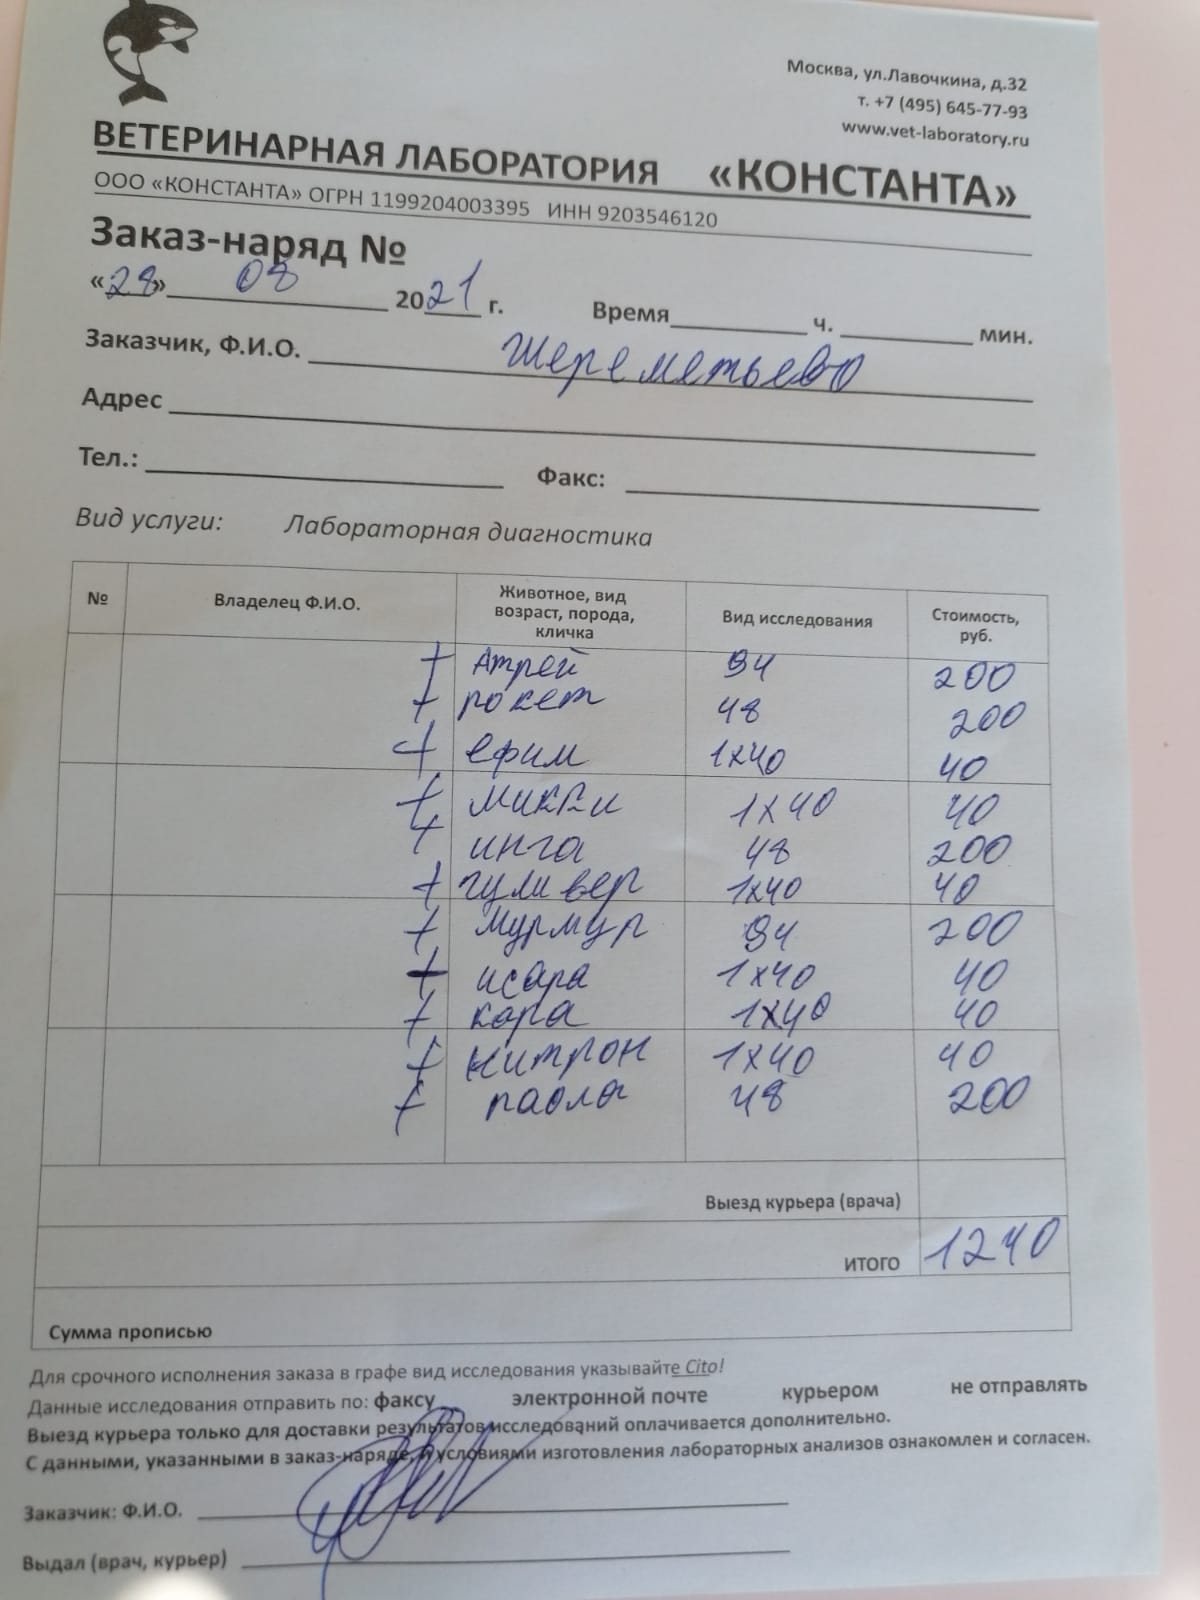 Москва, ул.Лавочкина, д.32
т. +7 (495) 645-77-93
www.vet-laboratory.ru
ВЕТЕРИНАРНАЯ ЛАБОРАТОРИЯ «КОНСТАНТА»
ООО «КОНСТАНТА» ОГРН 1199204003395 ИНН 9203546120
Заказ-наряд №
«28» 08 2021 г. Время ч. мин.
Заказчик, Ф.И.О. Шереметьево
Адрес
Тел.: Факс:
Вид услуги: Лабораторная диагностика
№ Владелец Ф.И.О. Животное, вид возраст, порода, кличка Вид исследования Стоимость, руб.
+ Атрей 94 200
+ рокет 48 200
+ ефим 1х40 40
+ микки 1х40 40
+ инга 48 200
+ гуливер 1х40 40
+ мурмур 94 200
+ исара 1х40 40
+ кара 1х40 40
+ нитрон 1х40 40
+ паола 48 200
Выезд курьера (врача)
ИТОГО 1240
Сумма прописью
Для срочного исполнения заказа в графе вид исследования указывайте Cito!
Данные исследования отправить по: факсу электронной почте курьером не отправлять
Выезд курьера только для доставки результатов исследований оплачивается дополнительно.
С данными, указанными в заказ-наряде, и условиями изготовления лабораторных анализов ознакомлен и согласен.
Заказчик: Ф.И.О.
Выдал (врач, курьер)